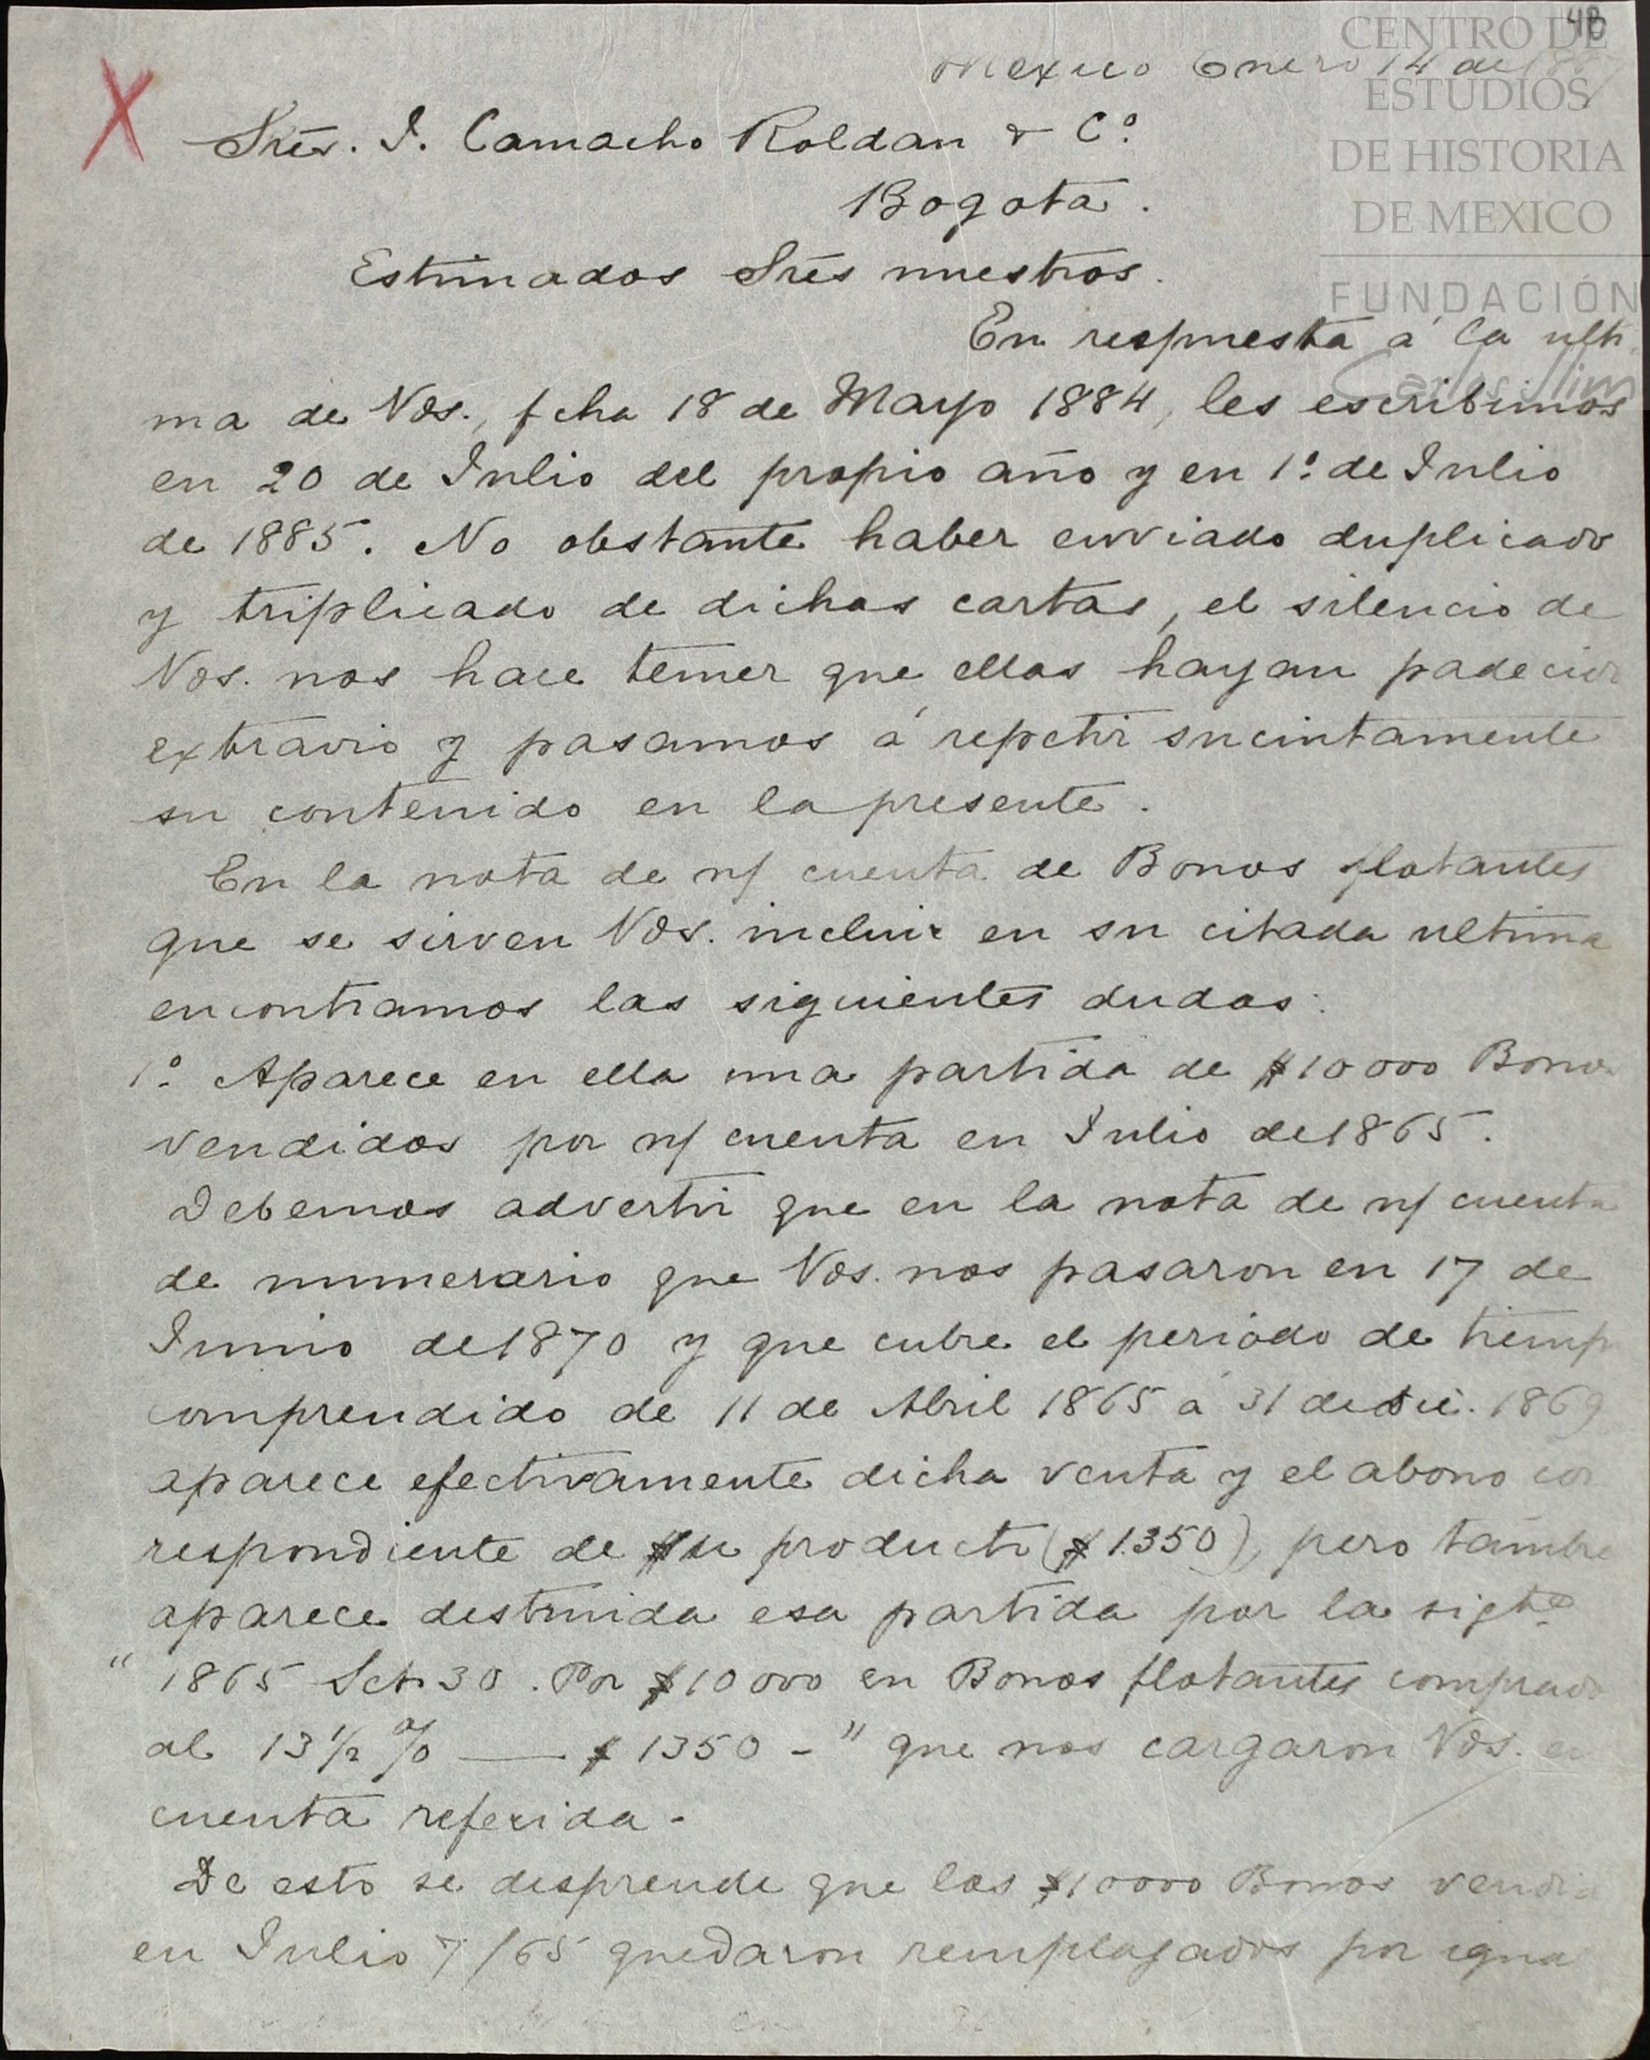 48
CENTRO DE
ESTUDIOS
DE HISTORIA
DE MEXICO
FUNDACIÓN
Carlos Slim
Mexico Enero 14 de
Srēs. I. Camacho Roldan & Cº.
Bogotá.
Estimados Srēs nuestros.
En respuesta á la ulti
ma de Vds., fcha 18 de Mayo 1884, les escribimos
en 20 de Julio del propio año y en 1º. de Julio
de 1885. No obstante haber enviado duplicado
y triplicado de dichas cartas, el silencio de
Vds. nos hace temer que ellas hayan padecido
extravio y pasamos á repetir sucintamente
su contenido en la presente.
En la nota de n/ cuenta de Bonos flotantes
que se sirven Vds. incluir en su citada ultima
encontramos las siguientes dudas:
1º. Aparece en ella una partida de $10000 Bonos
vendidos por n/ cuenta en Julio de 1865.
Debemos advertir que en la nota de n/ cuenta
de numerario que Vds. nos pasaron en 17 de
Junio de 1870 y que cubre el periodo de tiempo
comprendido de 11 de Abril 1865 á 31 de Dic. 1869
aparece efectivamente dicha venta y el abono cor
respondiente de su producto ($1.350), pero tambie
aparece destruida esa partida por la sigte.
" 1865 Set. 30. Por $10000 en Bonos flotantes comprado
al 13½ % — $1350 - " que nos cargaron Vds. en
cuenta referida -
De esto se desprende que los $10000 Bonos vendid
en Julio 7/65 quedaron remplazados por igua